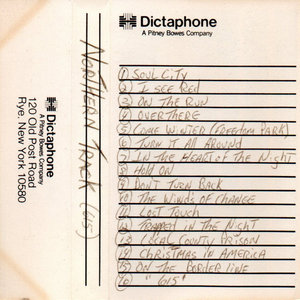 Dictaphone
A Pitney Bowes Company
① SOUL CITY
② I SEE RED
③ ON THE RUN
④ OVERTHERE
⑤ COME WINTER (FREEDOM PARK)
⑥ TURN IT ALL AROUND
⑦ IN THE HEART OF THE NIGHT
⑧ HOLD ON
⑨ DON'T TURN BACK
⑩ THE WINDS OF CHANGE
⑪ LOST TOUCH
⑫ TRAPPED IN THE NIGHT
⑬ LOCAL COUNTY PRISON
⑭ CHRISTMAS IN AMERICA
⑮ ON THE BORDER LINE
⑯ "615"
NORTHERN TRACK (615)
Dictaphone
A Pitney Bowes Company
120 Old Post Road
Rye, New York 10580